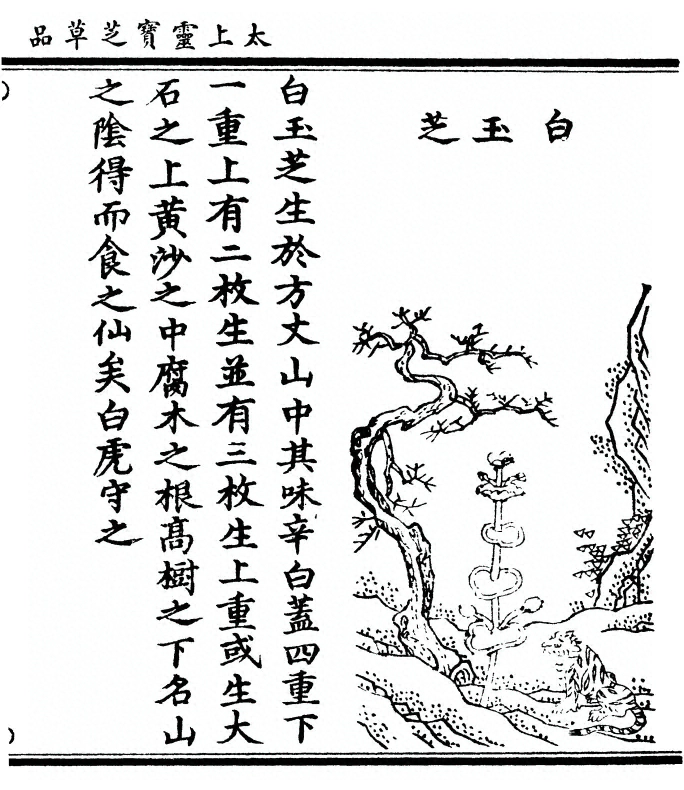 太上靈寶芝草品
白玉芝
白玉芝生於方丈山中其味辛白蓋四重下
一重上有二枚生並有三枚生上重或生大
石之上黄沙之中腐木之根髙樹之下名山
之陰得而食之仙矣白虎守之